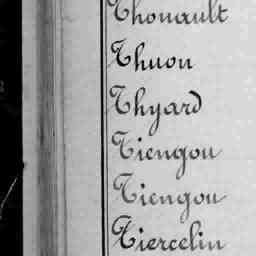 Thouault
Thuon
Thyard
Tiengou
Tiengou
Tiercelin